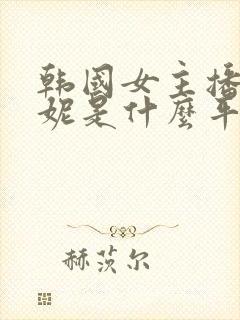 韩国女主播
妮是什麽平
赫茨尔